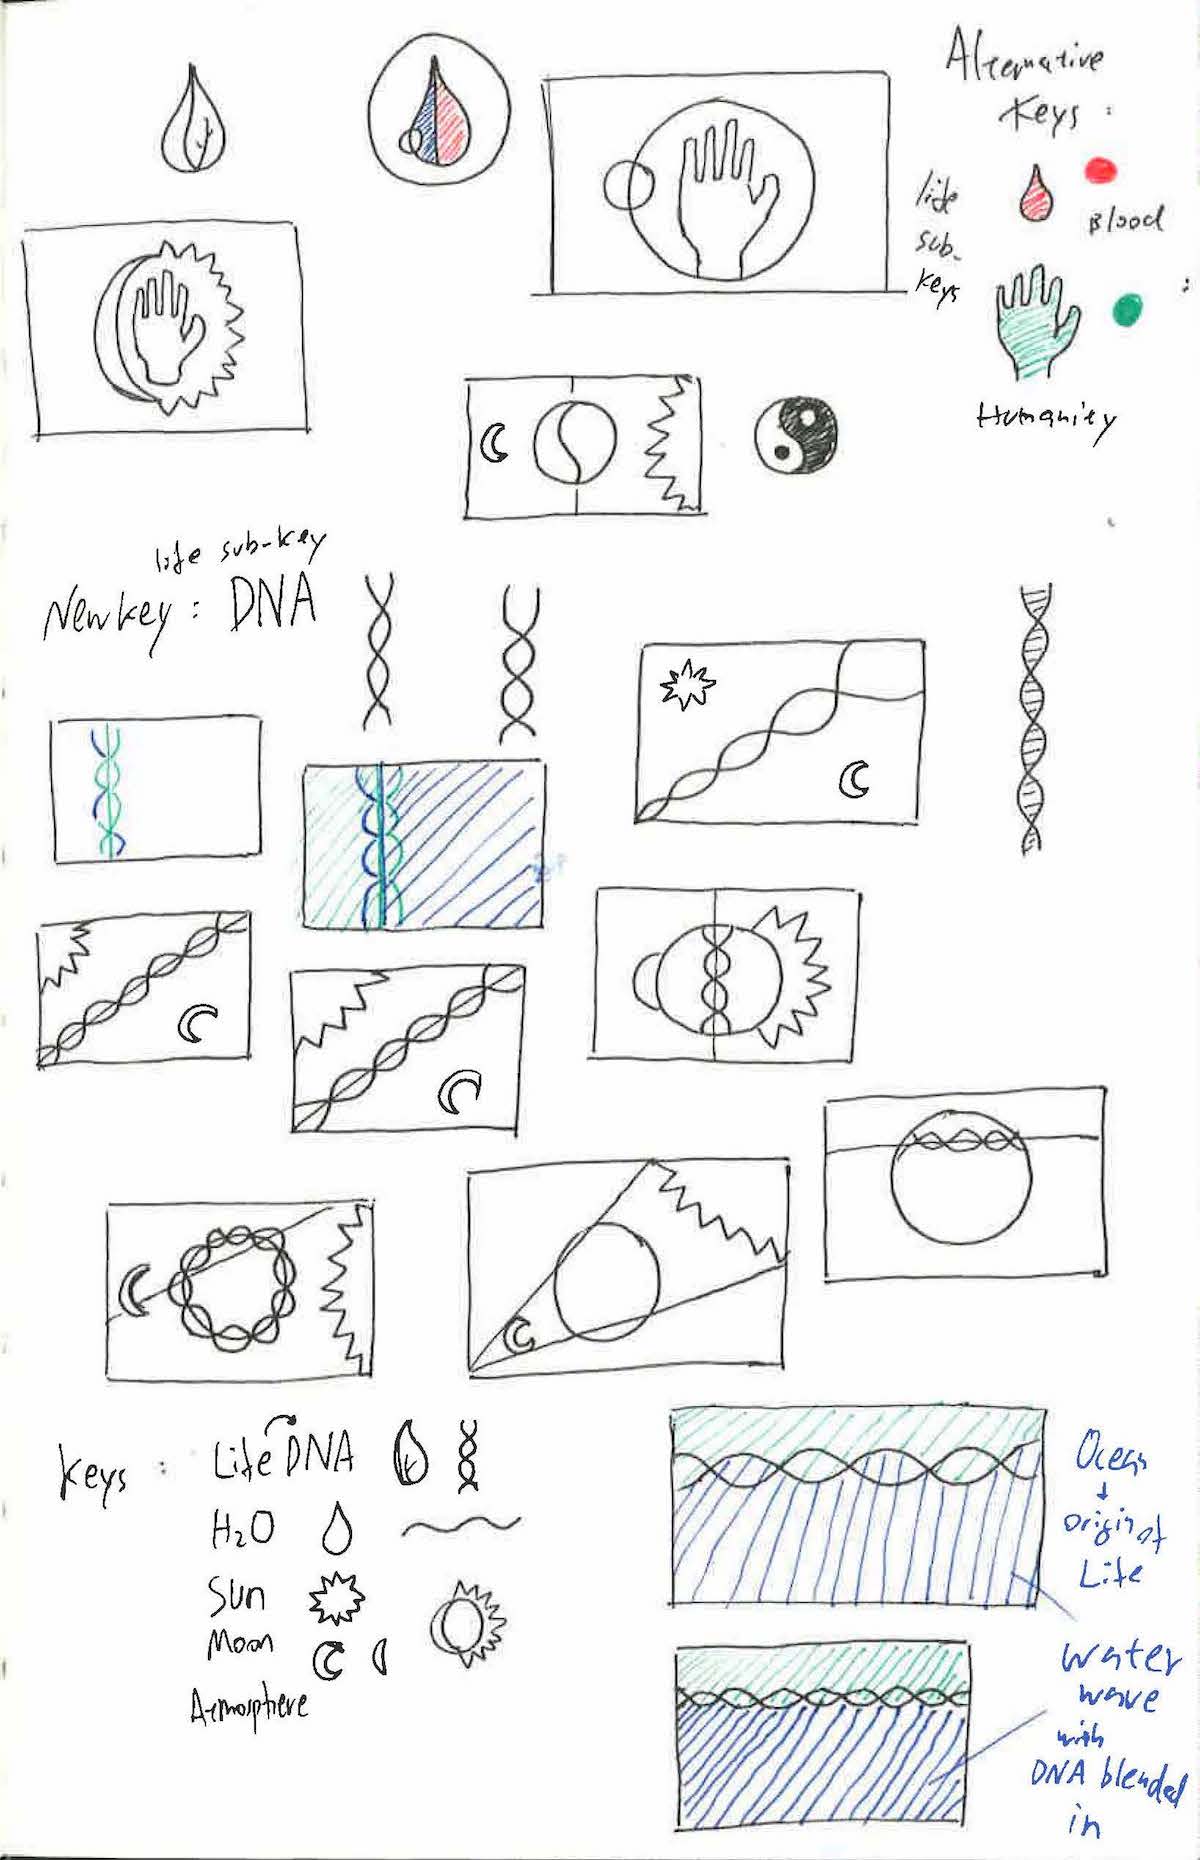 Alternative
Keys :
life
sub-
keys
Blood
Humanity
life sub-key
New key : DNA
Keys : Life DNA
H2O
Sun
Moon
Atmosphere
Ocean
Origin of
Life
Water
wave
with
DNA blended
in